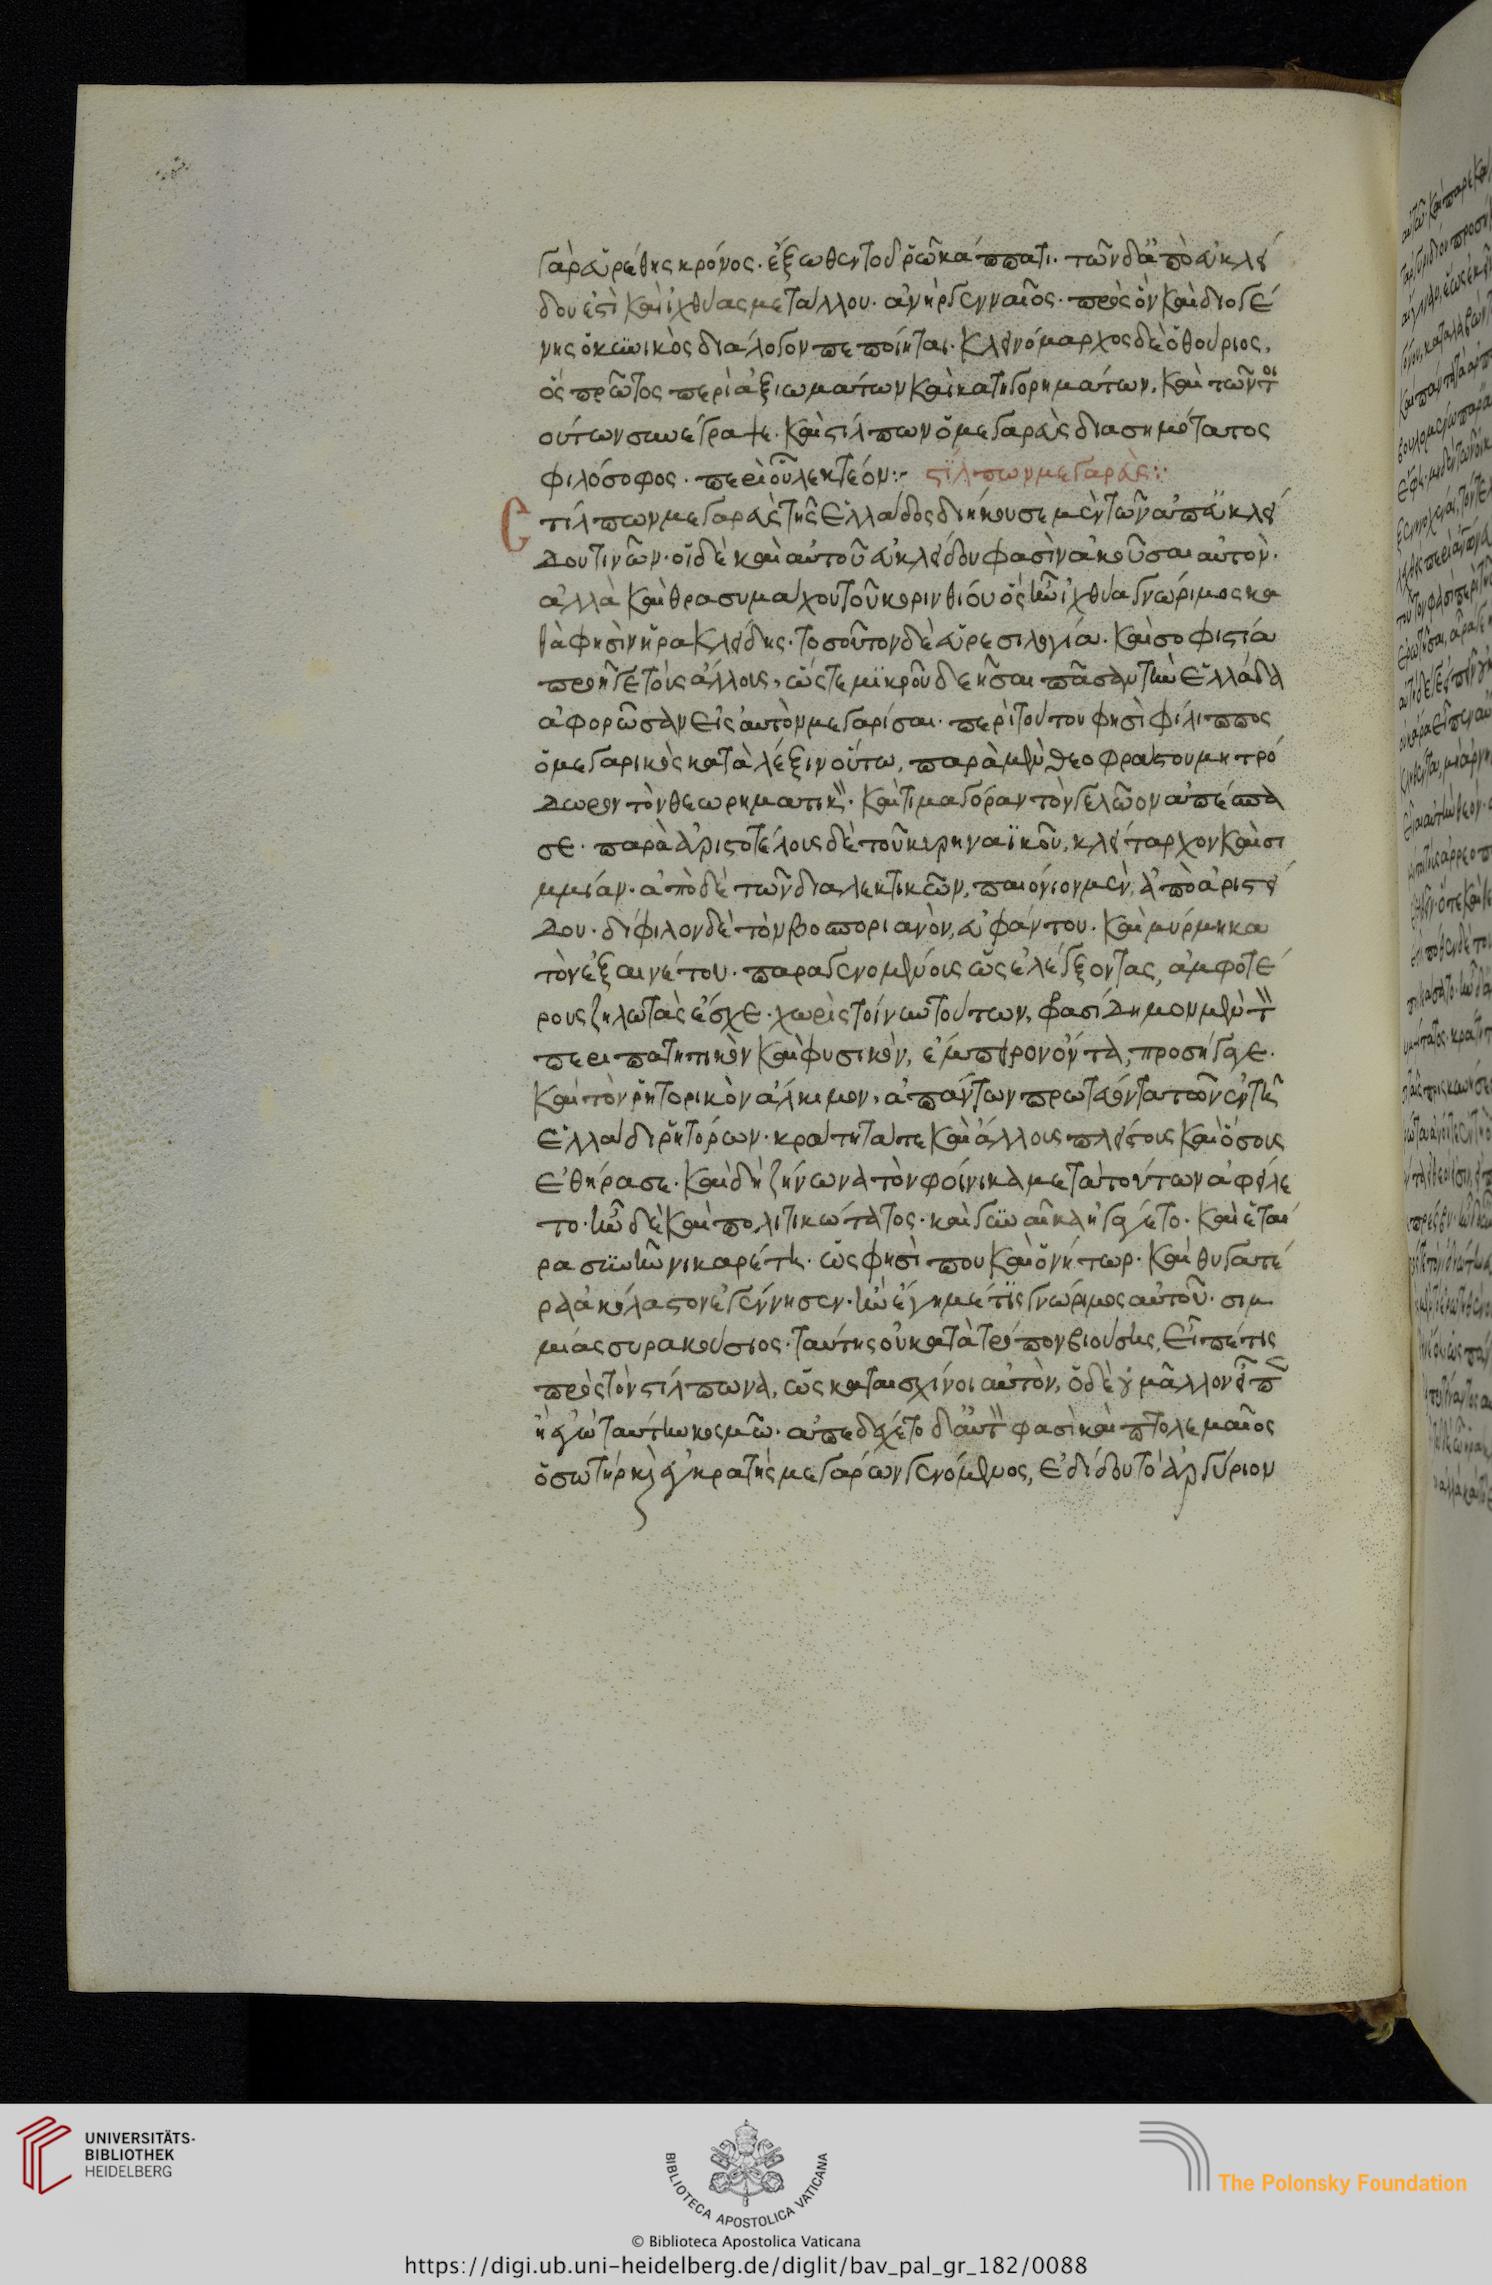 γὰρ εὑρέθης κρόνος. ἔξωθεν τοῦ ῥῶ κάππα τι. τῶν δ' ἀπὸ εὐκλεί
δου ἐστὶ καὶ ἰχθύας μετάλλου. ἀνὴρ γενναῖος. πρὸς ὃν καὶ διογέ
νης ὁ κυνικὸς διάλογον πεποίηται. κλεινόμαρχος δὲ ὁ θούριος,
ὃς πρῶτος περὶ ἀξιωμάτων καὶ κατηγορημάτων, καὶ τῶν τοι
ούτων συνέγραψε. καὶ στίλπων ὁ μεγαρεὺς διασημότατος
φιλόσοφος. περὶ οὗ λεκτέον:- στίλπων μεγαρεύς:
Στίλπων μεγαρεὺς τῆς ἑλλάδος διήκουσε μὲν τῶν ἀπ' εὐκλεί
δου τινῶν. οἱ δὲ καὶ αὐτοῦ εὐκλείδου φασὶν ἀκοῦσαι αὐτὸν.
ἀλλὰ καὶ θρασυμάχου τοῦ κορινθίου ὃς ἦν ἰχθύα γνώριμος κα
θὰ φησὶν ἡρακλείδης. τοσοῦτον δὲ εὑρεσιλογία. καὶ σοφιστία
προῆγε τοὺς ἄλλους, ὥστε μικροῦ δεῆσαι πᾶσαν τὴν ἑλλάδα
ἀφορῶσαν εἰς αὐτὸν μεγαρίσαι. περὶ τούτου φησὶ φίλιππος
ὁ μεγαρικὸς κατὰ λέξιν οὕτω, παρὰ μὲν θεοφράστου μητρό
δωρον τὸν θεωρηματικὸν. καὶ τιμαγόραν τὸν γελῶον ἀπέσπα
σε. παρὰ ἀριστοτέλους δὲ τοῦ κυρηναϊκοῦ, κλείταρχον καὶ σι
μμίαν. ἀπὸ δὲ τῶν διαλεκτικῶν, παιόνιον μὲν, ἀπὸ ἀριστεί
δου. δίφιλον δὲ τὸν βοσποριανὸν, εὐφάντου. καὶ μύρμηκα
τὸν ἐξαινέτου. παραγενομένοις ὡς ἐλέγξοντας, ἀμφοτέ
ρους ζηλωτὰς ἔσχε. χωρὶς τοίνυν τούτων, φρασίδημον μὲν τὸν
περιπατητικὸν καὶ φυσικὸν, ἔμπειρον ὄντα, προσήγαγε.
καὶ τὸν ῥητορικὸν ἄλκιμον, ἁπάντων πρωτεύοντα τῶν ἐν τῇ
ἑλλάδι ῥητόρων. κράτητά τε καὶ ἄλλους πλείστους καὶ ὅσους
ἐθήρασε. καὶ δὴ ζήνωνα τὸν φοίνικα μετὰ τούτων ἀφείλε
το. ἦν δὲ καὶ πολιτικώτατος. καὶ γυναῖκα ἠγάγετο. καὶ ἑταί
ρα συνῆν νικαρέτη. ὥς φησί που καὶ ὀνήτωρ. καὶ θυγατέ
ρα ἀκόλαστον ἐγέννησεν. ἣν ἔγημέ τις γνώριμος αὐτοῦ. σιμ
μίας συρακούσιος. ταύτης οὐ κατὰ τρόπον βιούσης, εἶπέ τις
πρὸς τὸν στίλπωνα, ὡς καταισχύνοι αὐτὸν, ὁ δὲ οὐ μᾶλλον εἶπεν
ἢ ἐγὼ ταύτην κοσμῶ. ἀπεδέχετο δ' αὐτὸν φασὶ καὶ πτολεμαῖος
ὁ σωτὴρ καὶ ἐγκρατὴς μεγάρων γενόμενος, ἐδίδου τὸ ἀργύριον
UNIVERSITÄTS-
BIBLIOTHEK
HEIDELBERG
BIBLIOTECA APOSTOLICA VATICANA
The Polonsky Foundation
© Biblioteca Apostolica Vaticana
https://digi.ub.uni-heidelberg.de/diglit/bav_pal_gr_182/0088